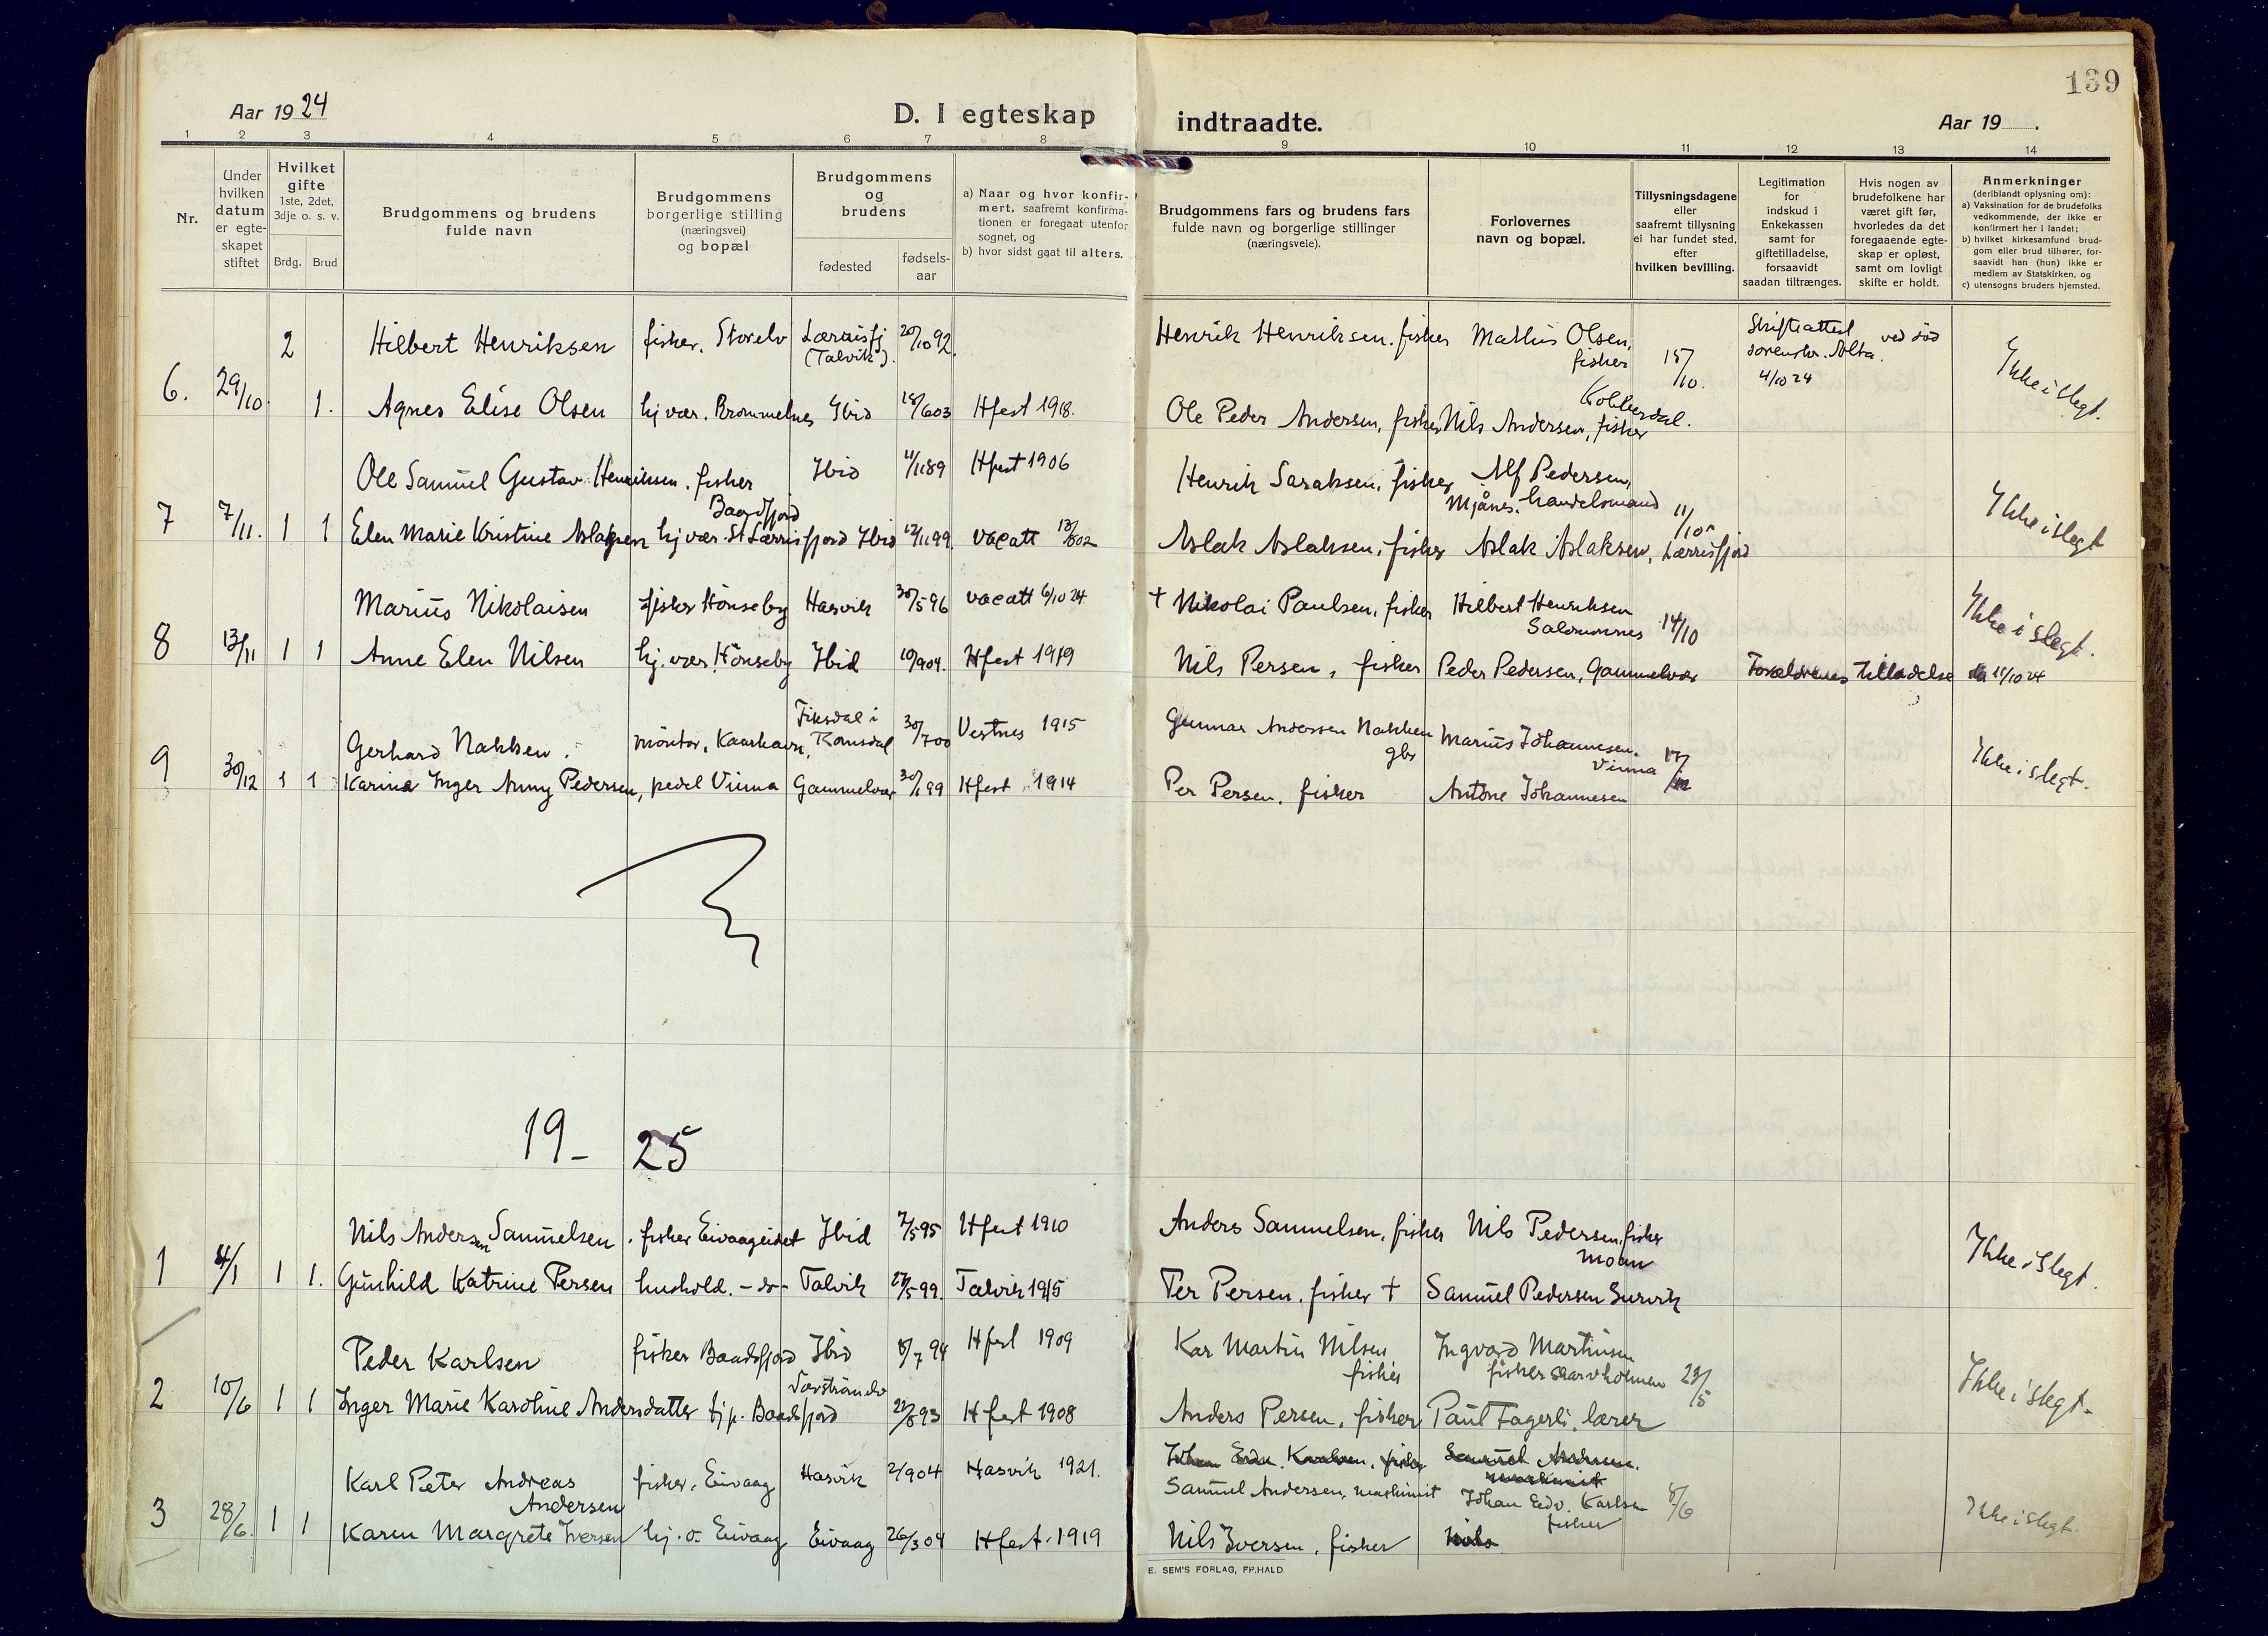 139
Aar 1924
D. I egteskap
indtraadte.
Aar 19 .
1 2 3 4 5 6 7 8 9 10 11 12 13 14
Nr.
Under
hvilken
datum
er egte-
skapet
stiftet
Hvilket
gifte
1ste, 2det,
3dje o. s. v.
Brdg. Brud
Brudgommens og brudens
fulde navn
Brudgommens
borgerlige stilling
(næringsvei)
og bopæl
Brudgommens
og
brudens
fødested
fødsels-
aar
a) Naar og hvor konfir-
mert, saafremt konfirma-
tionen er foregaat utenfor
sognet, og
b) hvor sidst gaat til alters.
Brudgommens fars og brudens fars
fulde navn og borgerlige stillinger
(næringsveie).
Forlovernes
navn og bopæl.
Tillysningsdagene
eller
saafremt tillysning
ei har fundet sted,
efter
hvilken bevilling.
Legitimation
for
indskud i
Enkekassen
samt for
giftetilladelse,
forsaavidt
saadan tiltrænges.
Hvis nogen av
brudefolkene har
været gift før,
hvorledes da det
foregaaende egte-
skap er opløst,
samt om lovligt
skifte er holdt.
Anmerkninger
(deriblandt oplysning om):
a) Vaksination for de brudefolks
vedkommende, der ikke er
konfirmert her i landet;
b) hvilket kirkesamfund brud-
gom eller brud tilhører, for-
saavidt han (hun) ikke er
medlem av Statskirken, og
c) utensogns bruders hjemsted.
2 Hilbert Henriksen fisker. Storelv Lerrisfj (Talvik). 20/10 92. Henrik Henriksen. fisker Mathis Olsen, fisker 15/10. Skifteattest sorenskr. Alta. 4/10 24 ved død
6. 29/10. 1. Agnes Elise Olsen hj vær. Brommelnes Ibid 18/6 03 Hfest 1918. Ole Peder Andersen, fisker Nils Andersen, fisker Kobberdal. Ikke i slegt.
Ole Samuel Gustav Henriksen. fisker Baadsfjord Ibid 4/11 89 Hfest 1906 Henrik Saraksen, fisker Alf Pedersen, Mjånes. handelsmand 11/10
7 7/11. 1 1 Elen Marie Kristine Aslaksen hj vær. St Lerrisfjord Ibid 12/11 99. vacatt 13/8 02 Aslak Aslaksen, fisker Aslak Aslaksen, Lerrisfjord Ikke i slegt
Marius Nikolaisen fisker Hönseby Hasvik 30/5 96 vacatt 6/10 24 + Nikolai Paulsen, fisker Hilbert Henriksen Salomonnes 14/10
8 13/11 1 1 Anne Elen Nilsen hj. vær. Hönseby Ibid 10/9 04. Hfest 1919 Nils Persen, fisker Peder Pedersen, Gammelvær Forældrenes tilladelse 11/10 24 Ikke i slegt.
Gerhard Nakken. möntør, Kaarhavn, Fiksdal i Romsdal 30/7 00 Vestnes 1915 Gunnar Andersen Nakken gbr Marius Johannesen. Vinna 17/
9 30/12 1 1 Karina Inger Anny Pedersen, pedel Vinna Gammelvær 30/1 99 Hfest 1914 Per Persen. fisker Antone Johannesen Ikke i slegt.
19 - 25
Nils Andersen Samuelsen. fisker Eivaageidet Ibid 7/5 95 Hfest 1910 Anders Samuelsen, fisker Nils Pedersen, fisker Moan
1 4/1 1 1. Gunhild Katrine Persen hushold. -do- Talvik 27/5 99. Talvik 1915 Per Persen. fisker + Samuel Pedersen Survik Ikke i slegt.
Peder Karlsen fisker Baadsfjord Ibid 8/7 94 Hfest 1909 Kar Martin Nilsen fisker Ingvard Martinsen fisker Skarvholmen 23/5
2 10/6 1 1 Inger Marie Karoline Andersdatter tjp. Baadsfjord 22/8 93 Hfest 1908 Anders Persen, fisker Paul Fagerli. lærer Ikke i slegt.
Karl Peter Andreas Andersen fisker, Eivaag Hasvik 2/9 04 Hasvik 1921. Samuel Andersen, maskinist Johan Edv. Karlsen fisker 8/6
3 28/6. 1 1 Karen Margrete Iversen hj. o. Eivaag Eivaag 26/3 04 Hfest. 1919 Nils Iversen, fisker Nils Ikke i slegt.
E. SEM'S FORLAG, FR.HALD